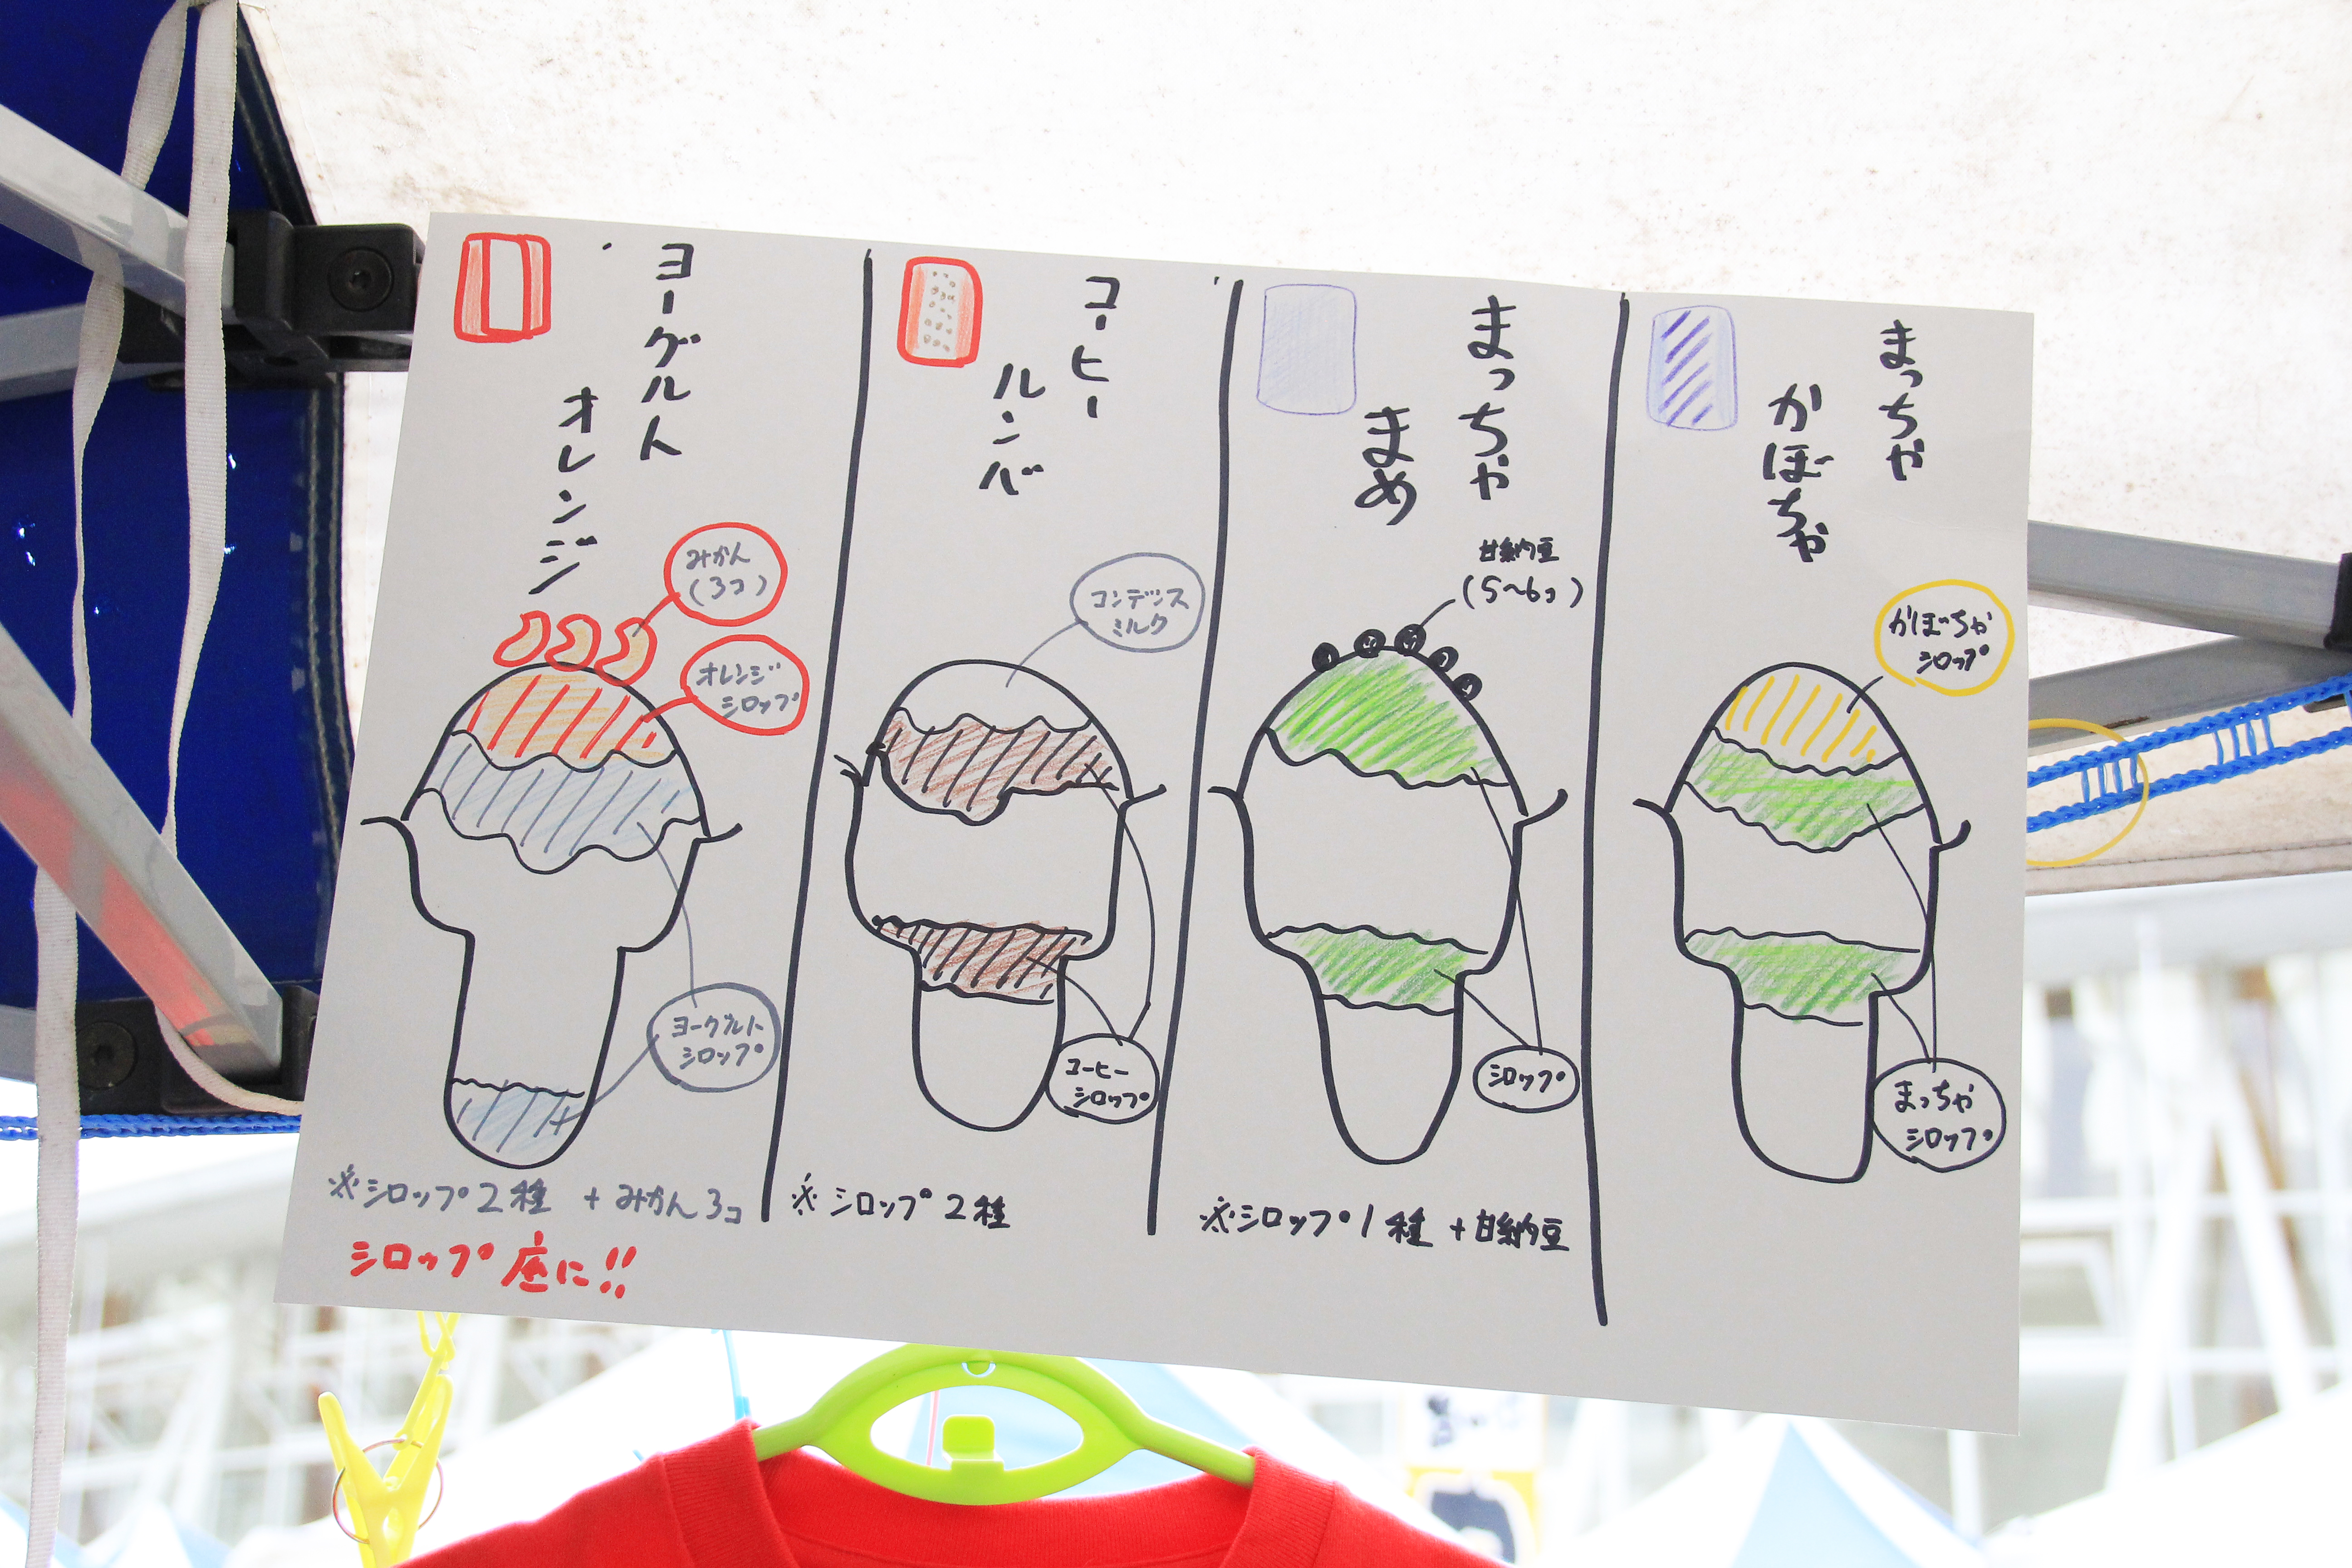 ヨーグルト
オレンジ
みかん
(3コ)
オレンジ
シロップ
ヨーグルト
シロップ
※シロップ2種 + みかん3コ
シロップ底に!!
コーヒー
ルンバ
コンデンス
ミルク
コーヒー
シロップ
※シロップ2種
まっちゃ
まめ
甘納豆
(5~6コ)
シロップ
※シロップ1種 + 甘納豆
まっちゃ
かぼちゃ
かぼちゃ
シロップ
まっちゃ
シロップ